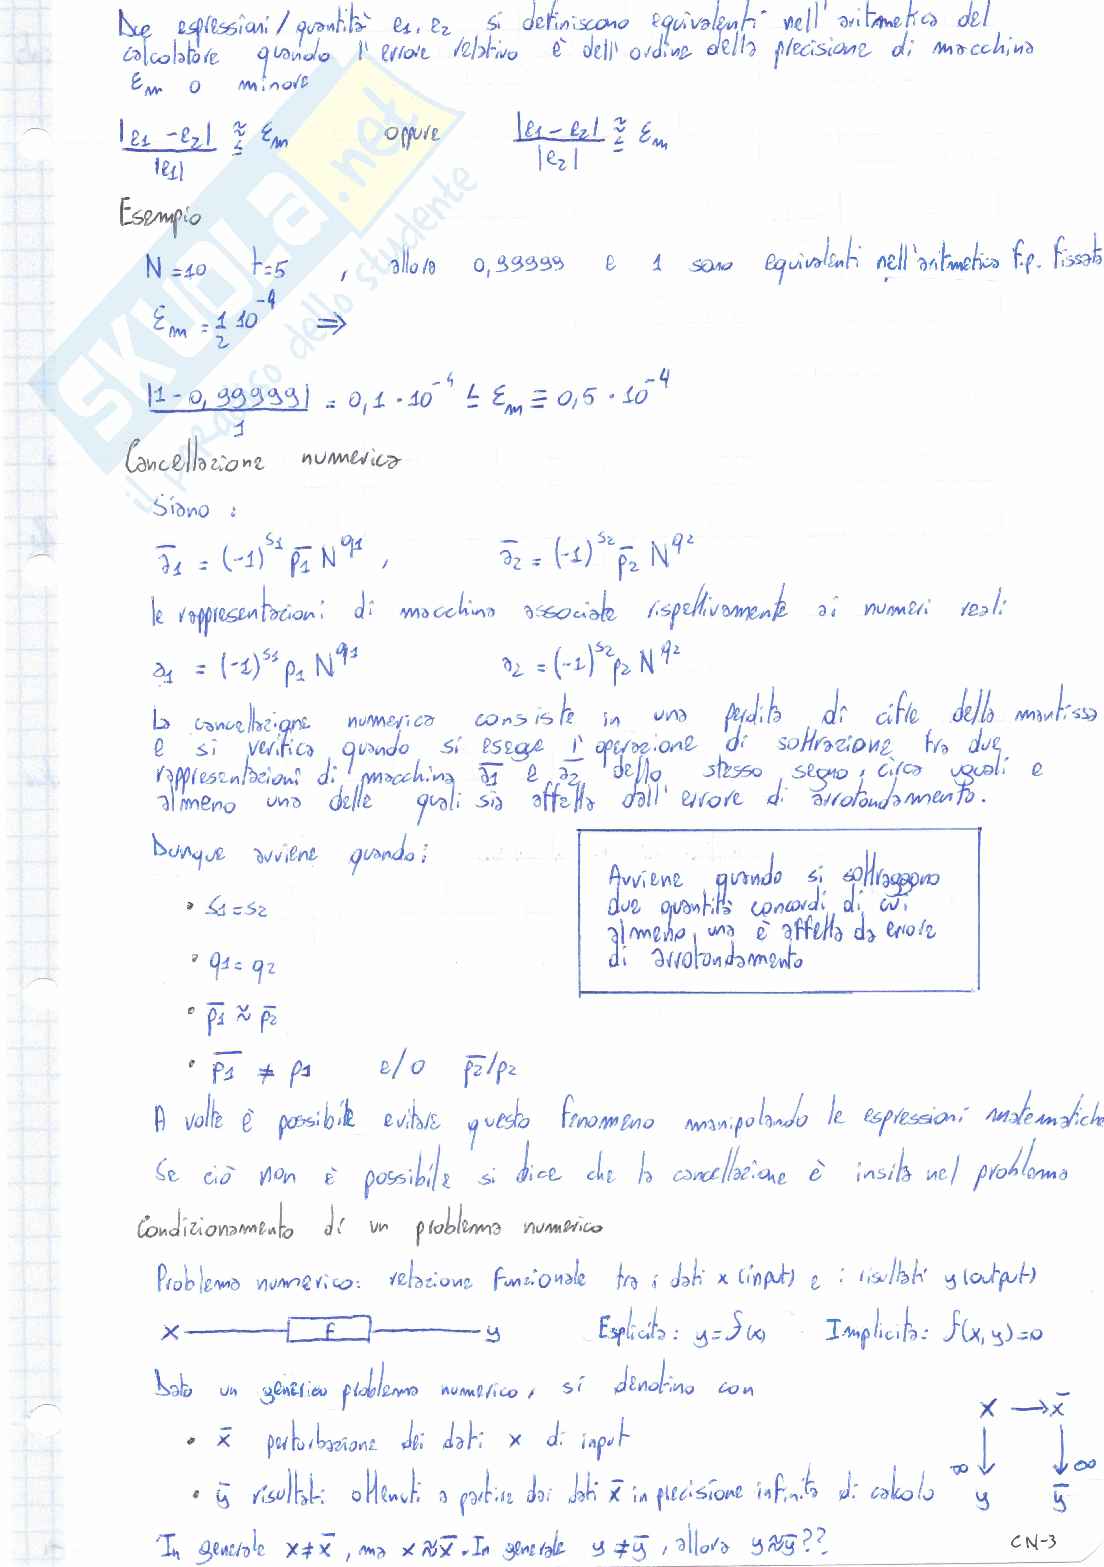 Due espressioni/quantità e1, e2 si definiscono equivalenti nell'aritmetica del
calcolatore quando l'errore relativo è dell'ordine della precisione di macchina
εm o minore
|e1 - e2| / |e1| ≲ εm oppure |e1 - e2| / |e2| ≲ εm
Esempio
N=10 t=5 , allora 0,99999 e 1 sono equivalenti nell'aritmetica f.p. fissata
εm = 1/2 10^-4 ⇒
|1 - 0,99999| / 1 = 0,1 · 10^-4 ≤ εm ≡ 0,5 · 10^-4
Cancellazione numerica
Siano :
a̅1 = (-1)^s1 p̅1 N^q1 , a̅2 = (-1)^s2 p̅2 N^q2
le rappresentazioni di macchina associate rispettivamente ai numeri reali
a1 = (-1)^s1 p1 N^q1 a2 = (-1)^s2 p2 N^q2
La cancellazione numerica consiste in una perdita di cifre della mantissa
e si verifica quando si esegue l'operazione di sottrazione tra due
rappresentazioni di macchina a̅1 e a̅2 dello stesso segno, circa uguali e
almeno una delle quali sia affetta dall'errore di arrotondamento.
Dunque avviene quando:
• s1=s2
• q1=q2
• p̅1 ≈ p̅2
• p̅1 ≠ p1 e/o p̅2/p2
Avviene quando si sottraggono
due quantità concordi di cui
almeno una è affetta da errore
di arrotondamento
A volte è possibile evitare questo fenomeno manipolando le espressioni matematiche
Se ciò non è possibile si dice che la cancellazione è insita nel problema
Condizionamento di un problema numerico
Problema numerico: relazione funzionale tra i dati x (input) e i risultati y (output)
x f y Esplicita: y=f(x) Implicita: f(x,y)=0
Dato un generico problema numerico, si denotino con
• x̅ perturbazione dei dati x di input
• y̅ risultati ottenuti a partire dai dati x̅ in precisione infinita di calcolo
x → x̅
∞ ↓ ↓ ∞
y y̅
In generale x≠x̅, ma x≈x̅. In generale y≠y̅, allora y≈y̅??
CN-3
SKUOLA.net
il paradiso dello studente